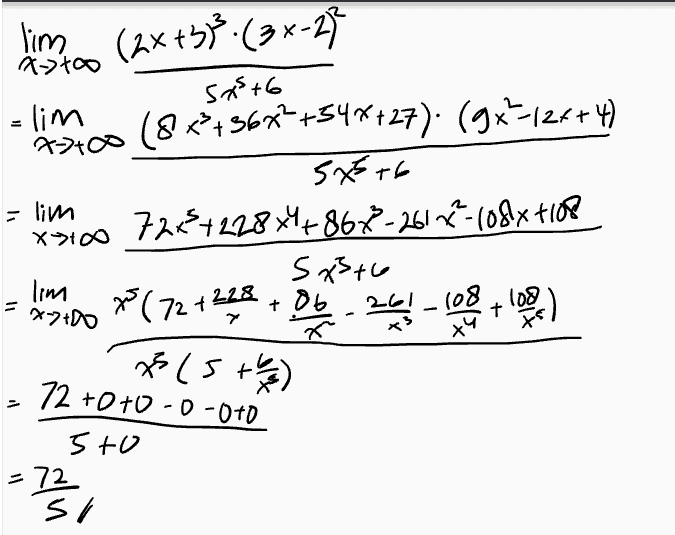 lim x→+∞ (2x+3)³·(3x-2)² / 5x⁵+6
= lim x→+∞ (8x³+36x²+54x+27)·(9x²-12x+4) / 5x⁵+6
= lim x→+∞ 72x⁵+228x⁴+86x³-261x²-108x+108 / 5x⁵+6
= lim x→+∞ x⁵(72+228/x+86/x²-261/x³-108/x⁴+108/x⁵) / x⁵(5+6/x⁵)
= 72+0+0-0-0+0 / 5+0
= 72/5 //